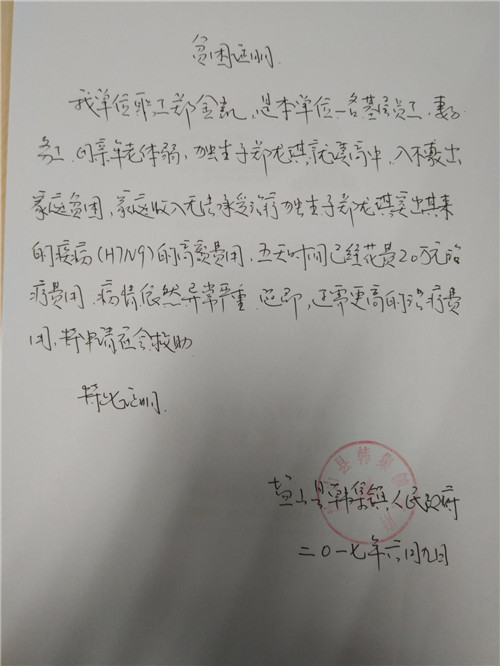 贫困证明
我单位职工郑金凯,是本单位一名基层员工,妻子
务工,母亲年老体弱,独生子郑龙琪就读高中,入不敷出
家庭贫困,家庭收入无法承受治疗独生子郑龙琪突出其来
的疾病(H7N9)的高额费用,五天时间已经花费20万元治
疗费用,病情依然异常严重,后期,还需更高的治疗费
用,特申请社会救助
特此证明.
盐山县韩集镇人民政府
二〇一七年六月九日